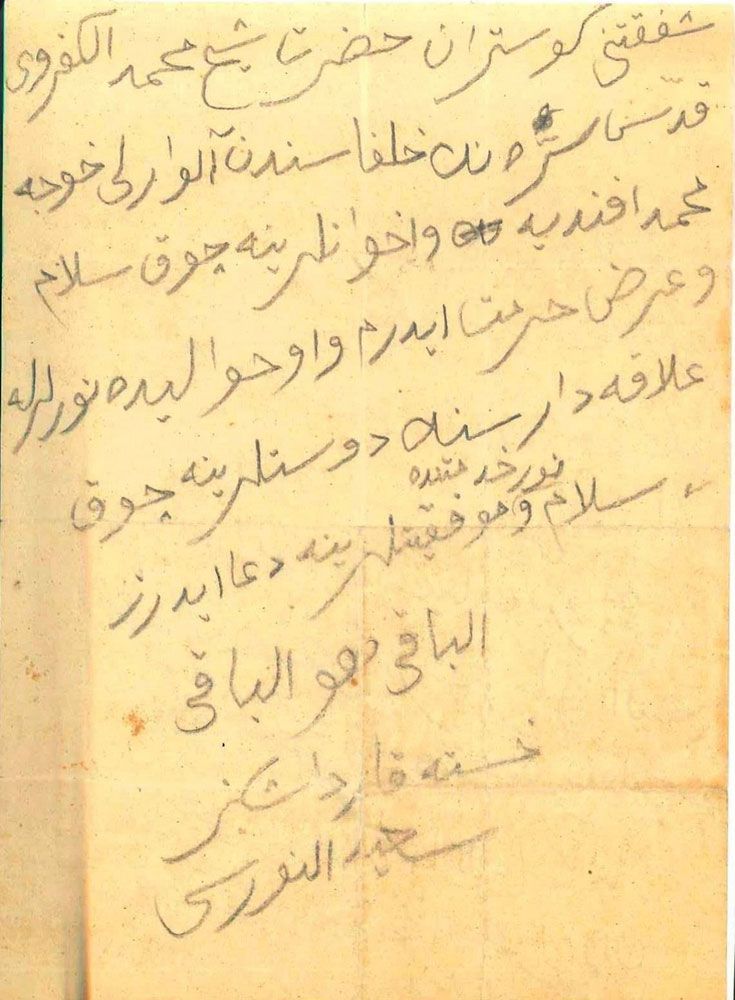 شفقتنی کوستران حضرت شیخ محمد الکفروی
قدّس سرّه نك خلفاسندن آلوارلی خوجه
محمد افندیه واخوانلرینه چوق سلام
وعرض حرمت ایدرم واوحوالیده نورلرله
علاقه دار سنك دوستلرینه چوق
نور خدمتنده
سلام وموفقیتلرینه دعا ایدرز
الباقی هو الباقی
خسته قارداشکز
سعید النورسی